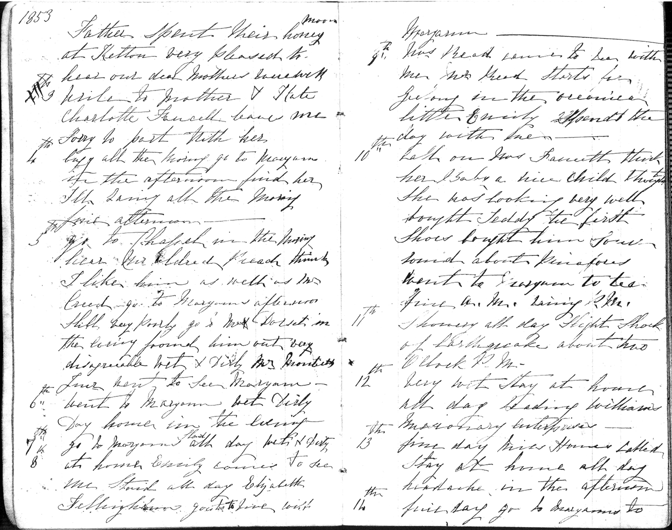 1853
Father spent their honey moon
at Ketton very pleased to
hear our dear Mothers
3th write to Mother & Kate
Charlotte Fawcett leave me
Sorry to part with her
4th busy all the Morng go to Maryann
in the afternoon find her
Ill Rainy all the Morng
fair afternoon
5th go to Chapel in the Morng
hear Mr Eldred Preach think
I like him as well as Mr
Creed go to Maryann afternoon
Still very Poorly go to Mrs Dorset in
the eveng found him out very
disagreeable wet & Dirty Mr
went to See Maryann
6th went to Maryann wet Dirty
Day home in the eveng
7th go to Maryann all day wet & Dirty
8th at home Emily comes to see
me Staid all day Elizabeth
goes to live with
Maryann
9th Mrs Read came to tea with
me Mr Read Starts for
Geelong in the evening
little Emily Spends the
day with her
10th Call on Mrs Fawcett think
her Baby a nice Child thought
She was looking very well
bought Teddy the first
Shoes bought him Some
about Pinafores
went to Maryann to tea
fine A.M. rainy P.M.
11th Showery all day Slight Shock
of Earthquake about two
O'Clock P.M.
12th Very wet Stay at home
all day Reading Williams
Missionary Enterprises
13th fine day Miss Homes Called
Stay at home all day
headache in the afternoon
14th fine day go to Maryanns to